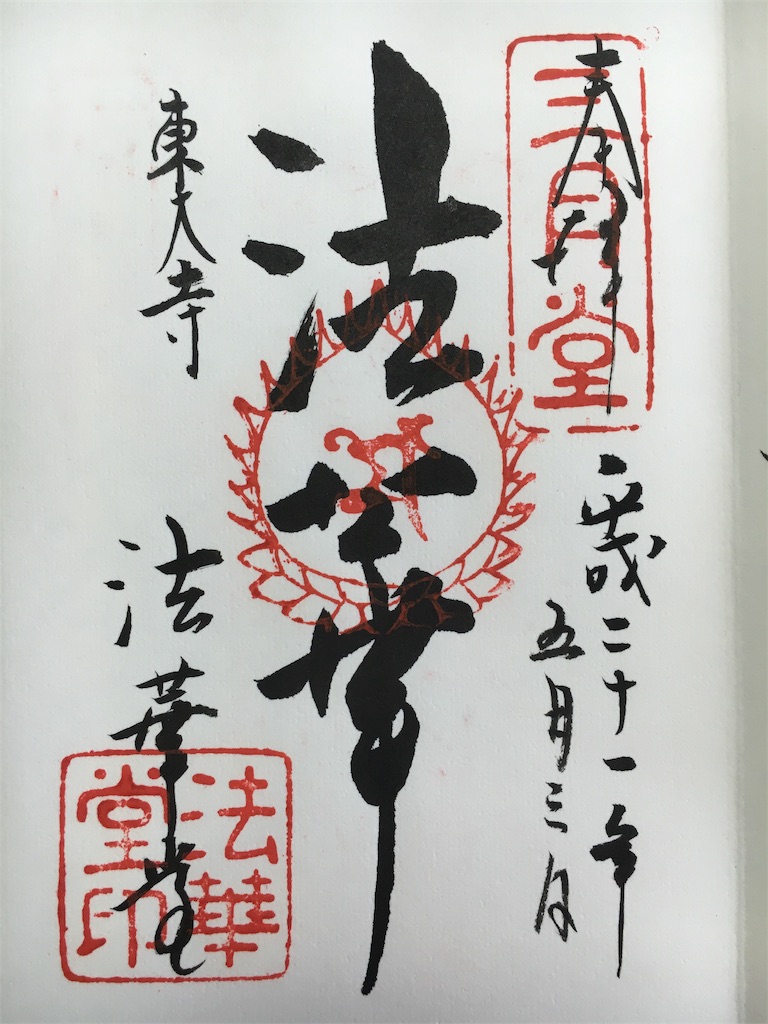 奉拝
三月堂
平成二十一年
五月三日
法華
東大寺
法華堂
法華堂印